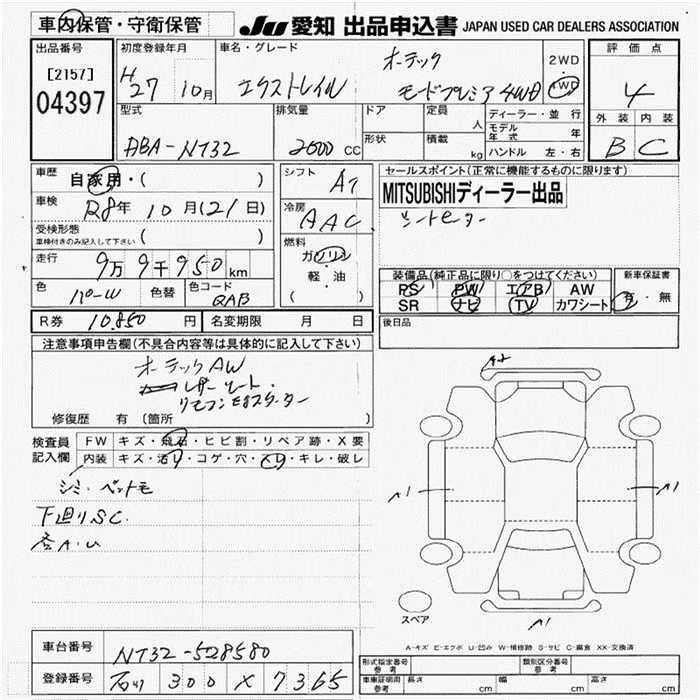 車内保管・守衛保管
JU 愛知 出品申込書 JAPAN USED CAR DEALERS ASSOCIATION
出品番号
[2157]
04397
初度登録年月
H27 10月
車名・グレード
エクストレイル
オーテック
モードプレミア 4WD
2WD
4WD
評価点
4
外装 内装
B C
型式
ABA-NT32
排気量
2000 cc
ドア
形状
定員 人
積載 kg
ディーラー・並行
モデル年式 年
ハンドル 左・右
車歴
自家用・( )
車検
R8年 10月(21日)
受検形態
車検付きのみ記入して下さい ( )
走行
9万9千950km
色
パールW
色替
色コード
QAB
シフト AT
冷房
AAC
燃料
ガソリン
軽・油
( )
セールスポイント(正常に機能するものに限ります)
MITSUBISHIディーラー出品
シートヒーター
装備品(純正品に限り○をつけてください)
PS PW エアB AW
SR ナビ TV カワシート
新車保証書
有・無
後日品
R券 10,850円
名変期限 月 日
注意事項申告欄(不具合内容等は具体的に記入して下さい)
オーテックAW
レザーシート・
リモコンEgスターター
修復歴 有 (箇所 )
検査員
記入欄
FW キズ・飛石・ヒビ割・リペア跡・X要
内装 キズ・汚レ・コゲ・穴・スレ・キレ・破レ
シミ・ペット毛
下廻りS.C.
各A.U
A2
A1
A1
A1
スペア
A-キズ E-エクボ U-凹み W-補修跡 S-サビ C-腐食 XX-交換済
車台番号
NT32-528580
登録番号
石川 300 X 7365
形式指定番号
参考
類別区分番号
参考
車庫証明用
参考
長さ cm 幅 cm 高さ cm